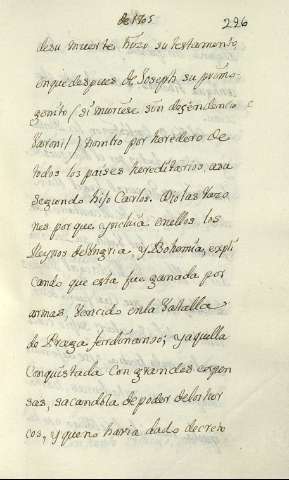 de 1705
226
desu muerte hizo su testamento,
enque despues de Joseph su primo
genito (si muriese sin desendencia
Varonil) nombro por heredero de
todos los paises hereditarios, asu
segundo hijo Carlos. Distas razo
nes por que yncluia enellos los
Reynos de Ungria, y Bohemia, expli
cando que esta fue ganada por
armas, vencido enla Vatalla
de Praga ferdinando; yaquella
Conquistada con grandes expen
sas, sacandola de poder delos tur
cos, y que no havia dado decreto